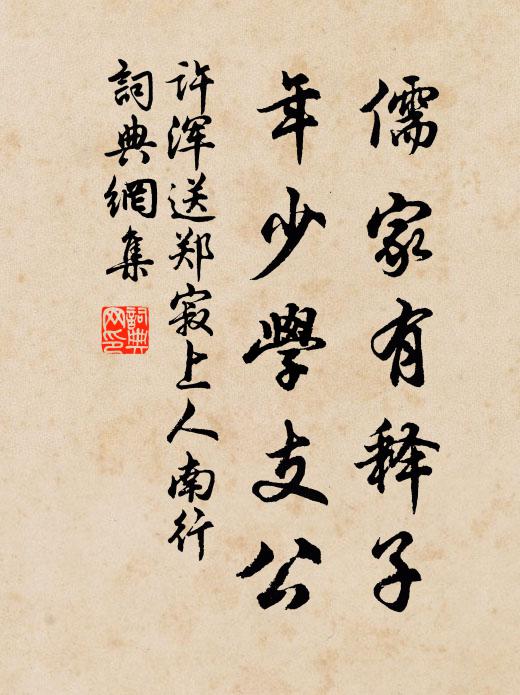 儒家有释子
年少學支公
许浑送郑寂上人南行
詞典網集
詞典网印